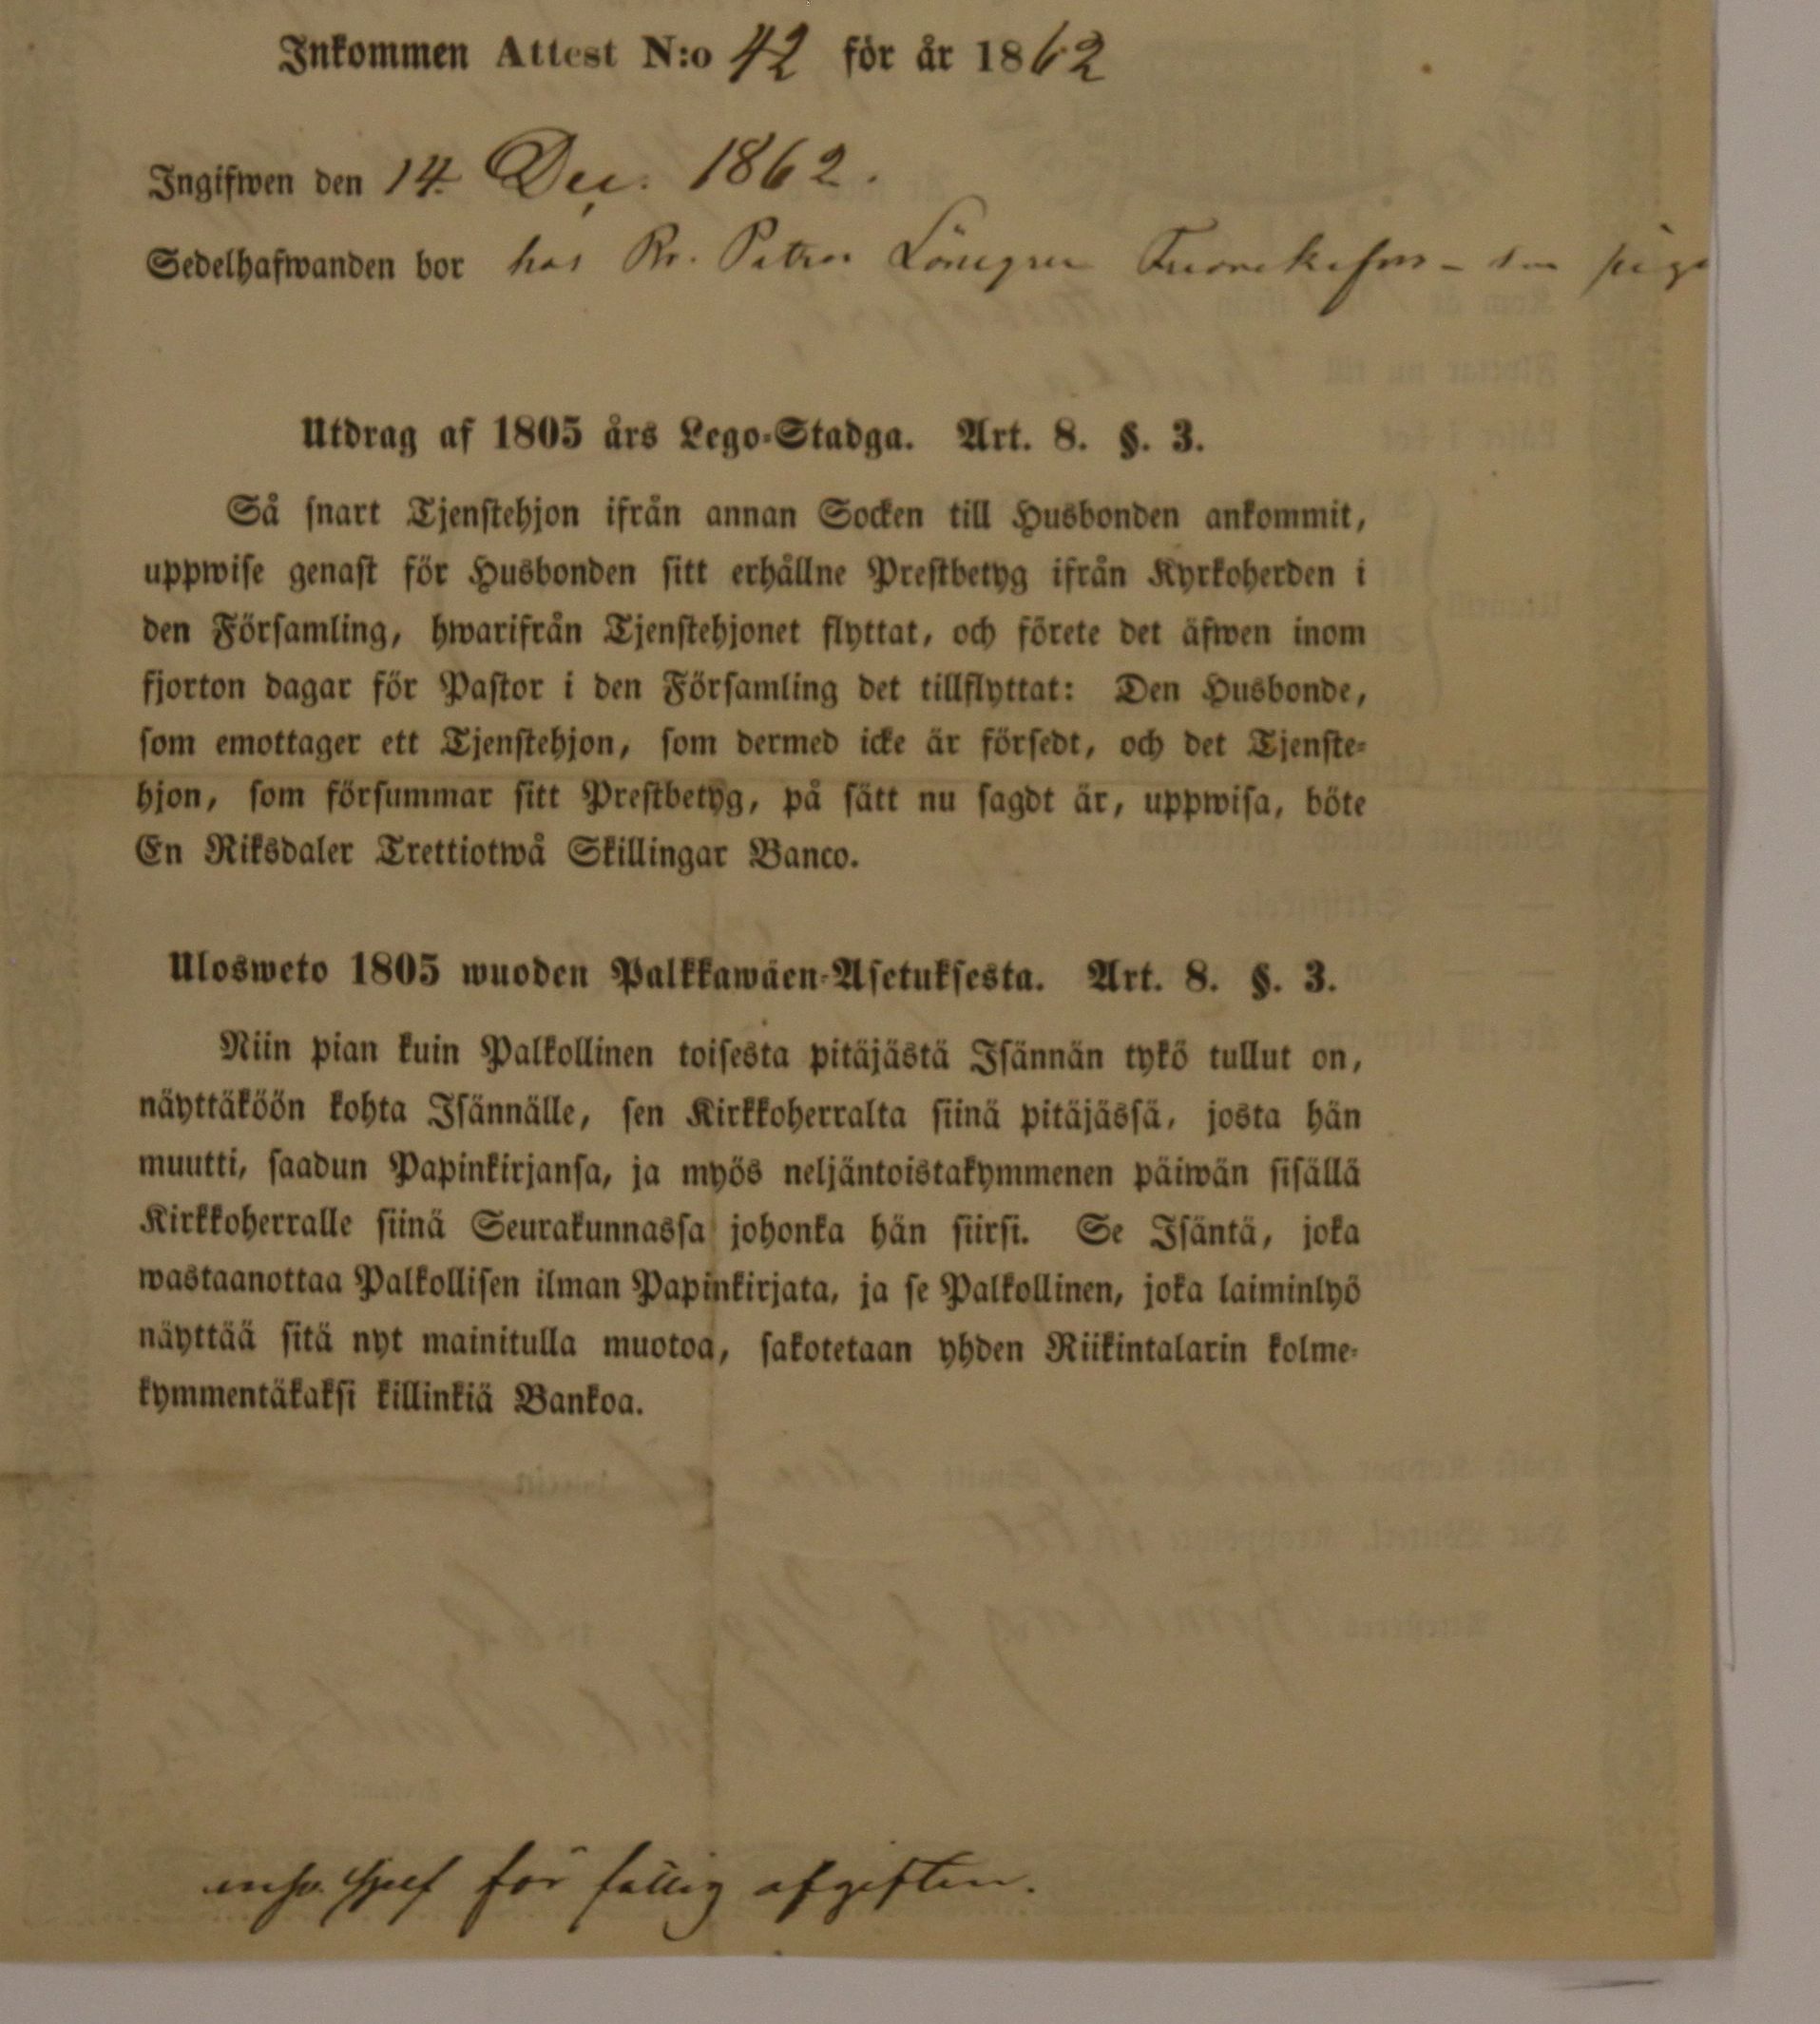 Inkommen Attest N:o 42 för år 1862
Ingifwen den 14. Dec. 1862.
Sedelhafwanden bor hos
Utdrag af 1805 års Lego-Stadga. Art. 8. §. 3.
Så snart Tjenstehjon ifrån annan Socken till Husbonden ankommit,
uppwise genast för Husbonden sitt erhållne Prestbetyg ifrån Kyrkoherden i
den Församling, hwarifrån Tjenstehjonet flyttat, och förete det äfwen inom
fjorton dagar för Pastor i den Församling det tillflyttat: Den Husbonde,
som emottager ett Tjenstehjon, som dermed icke är försedt, och det Tjenste-
hjon, som försummar sitt Prestbetyg, på sätt nu sagdt är, uppwisa, böte
En Riksdaler Trettiotwå Skillingar Banco.
Ulosweto 1805 wuoden Palkkawäen-Asetuksesta. Art. 8. §. 3.
Niin pian kuin Palkollinen toisesta pitäjästä Isännän tykö tullut on,
näyttäköön kohta Isännälle, sen Kirkkoherralta siinä pitäjässä, josta hän
muutti, saadun Papinkirjansa, ja myös neljäntoistakymmenen päiwän sisällä
Kirkkoherralle siinä Seurakunnassa johonka hän siirsi. Se Isäntä, joka
wastaanottaa Palkollisen ilman Papinkirjata, ja se Palkollinen, joka laiminlyö
näyttää sitä nyt mainitulla muotoa, sakotetaan yhden Riikintalarin kolme-
kymmentäkaksi killinkiä Bankoa.
för fällig afgiften.